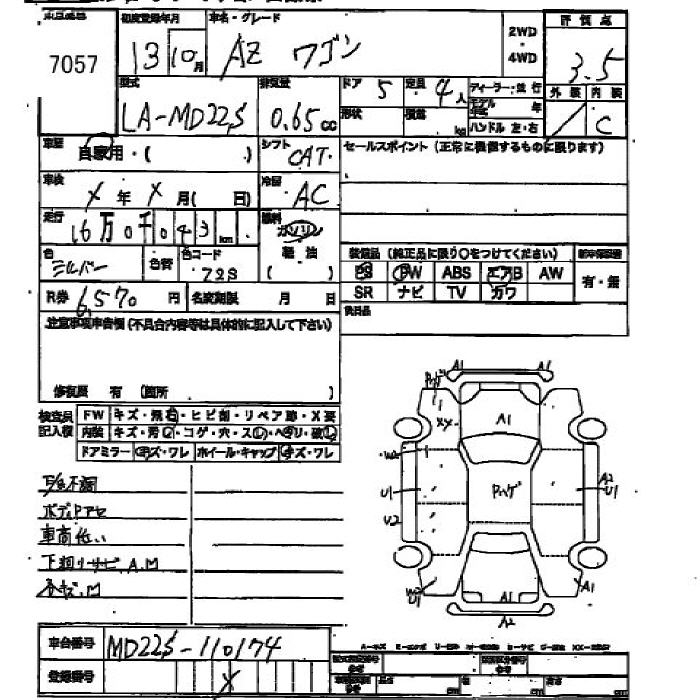 7057
初度登録年月
13 10月
車名・グレード
AZ ワゴン
2WD
4WD
評価点
3.5
外装 内装
C
型式
LA-MD22S
排気量
0.65cc
ドア 5
定員 4人
形状
積載 kg
ディーラー・並行
モデル 年
ハンドル 左・右
車歴
自家用・( )
シフト
CAT
セールスポイント(正常に機能するものに限ります)
車検
X年 X月( 日)
冷房
AC
走行
16万0千043km
燃料
ガソリン
軽油
( )
色
シルバー
色替
色コード
22S
装備品(純正品に限り○をつけてください)
PS PW ABS エアB AW
SR ナビ TV カワ
有・無
R券 6,570円
名変期限 月 日
後日品
注意事項申告欄(不具合内容等は具体的に記入して下さい)
修復歴 有 (箇所 )
検査員記入欄
FW キズ・飛石・ヒビ割・リペア跡・X要
内装 キズ・汚れ・コゲ・穴・スレ・ヘタリ・破れ
ドアミラー キズ・ワレ ホイール・キャップ キズ・ワレ
ボディ
車高低い
下廻りサビA.M
A1 A1
ハゲ
A1
XY
W2
U1
U2
ハゲ
A2
U1
W2
U1
A1
A1
A2
車台番号 MD22S-110174
登録番号 X
長さ cm
幅 cm
高さ cm